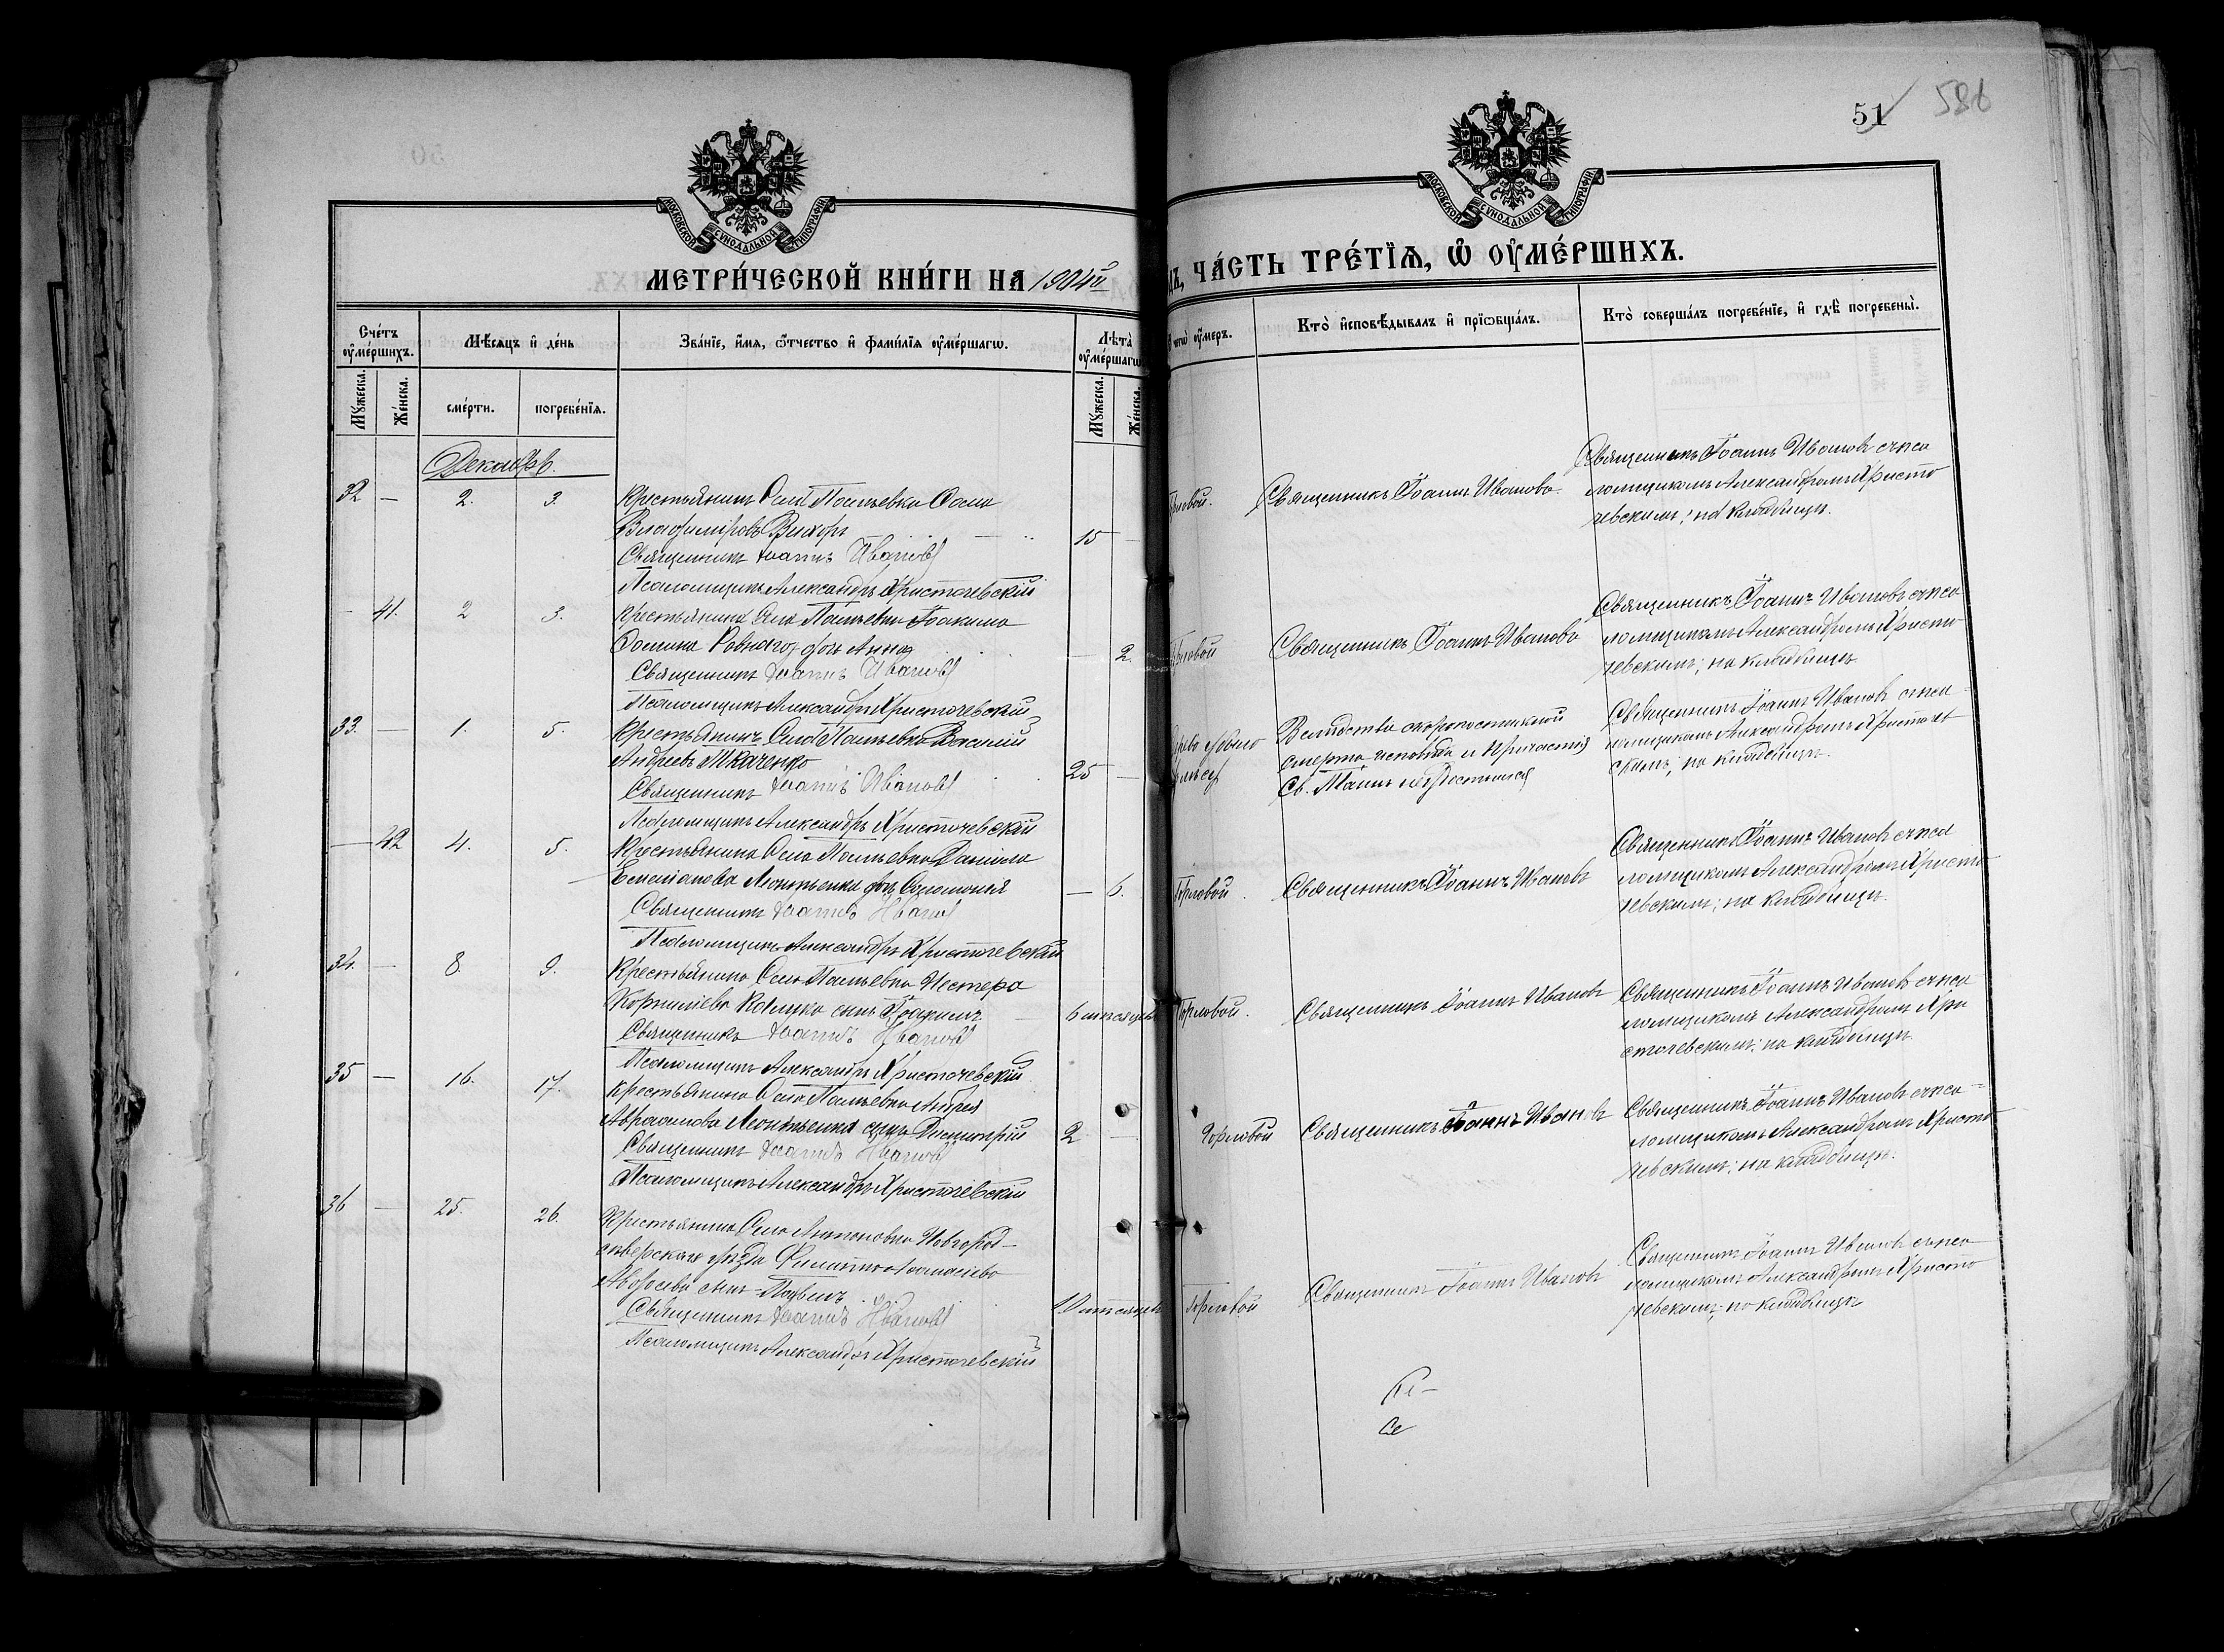 51
586
МОСКОВСКОЙ СУНОДАЛЬНОЙ ТИПОГРАФІИ
МОСКОВСКОЙ СУНОДАЛЬНОЙ ТИПОГРАФІИ
МЕТРИ́ЧЕСКОЙ КНИ́ГИ НА 1904й
ЧА́СТЬ ТРЕ́ТІѦ, Ѡ҆ ОУ҆МЕ́РШИХЪ.
Сче́тъ оу҆ме́ршихъ.
Мѣ́сяцъ и҆ де́нь
Зва́нїе, и҆́мѧ, ѻ҆́тчество и҆ фами́лїѧ оу҆ме́ршагѡ.
Лѣта̀ оу҆ме́ршагѡ
оу҆́меръ.
Кто̀ и҆сповѣ́дывалъ и҆ прїѡбща́лъ.
Кто̀ соверша́лъ погребе́нїе, и҆ гдѣ̀ погребены̀.
Мꙋ́жеска.
Же́нска.
сме́рти.
погребе́нїѧ.
Мꙋ́жеска.
Же́нска.
Декабрь.
32 — 2. 3. Крестьянинъ Села
Владиміровъ 15 —
Священникъ Іоаннъ Ивановъ
Псаломщикъ Александръ Христочевскій
Священникъ Іоаннъ Ивановъ.
Священникъ Іоаннъ Ивановъ съ пса
ломщикомъ Александромъ Христо
чевскимъ; на кладбищѣ.
— 41. 2 3. Крестьянина Села Іоакима
дочь Анна — 2.
Священникъ Іоаннъ Ивановъ
Псаломщикъ Александръ Христочевскій
Священникъ Іоаннъ Ивановъ
Священникъ Іоаннъ Ивановъ съ пса
ломщикомъ Александромъ Христо
чевскимъ; на кладбищѣ
33. — 1. 5. Крестьянинъ Села Василій
Андреевъ Ткаченко 25 —
Священникъ Іоаннъ Ивановъ
Псаломщикъ Александръ Христочевскій
Вслѣдствіе скоропостижной
смерти исповѣди и Причастія
Св. Таинъ не удостоился
Священникъ Іоаннъ Ивановъ съ пса-
ломщикомъ Александромъ Христочев
скимъ; на кладбищѣ.
— 42 4. 5. Крестьянина Села Даніила
Леонтьенка дочь Соломонія — 6.
Священникъ Іоаннъ Ивановъ
Псаломщикъ Александръ Христочевскій
Горловой.
Священникъ Іоаннъ Ивановъ
Священникъ Іоаннъ Ивановъ съ пса
ломщикомъ Александромъ Христо
чевскимъ; на кладбищѣ.
34. — 8. 9. Крестьянина Села Нестера
Корниліева сынъ Іоакимъ 6 мѣсяцевъ
Священникъ Іоаннъ Ивановъ
Псаломщикъ Александръ Христочевскій
Горловой.
Священникъ Іоаннъ Ивановъ
Священникъ Іоаннъ Ивановъ съ пса
ломщикомъ Александромъ Хри
сточевскимъ; на кладбищѣ.
35 — 16. 17. Крестьянина Села Андрея
Авраамова Леонтьенка сынъ Димитрій 2 —
Священникъ Іоаннъ Ивановъ
Псаломщикъ Александръ Христочевскій
Горловой
Священникъ Іоаннъ Ивановъ
Священникъ Іоаннъ Ивановъ съ пса-
ломщикомъ Александромъ Христо
чевскимъ; на кладбищѣ.
36 — 25. 26. Крестьянина Села Антоновки Новгород-
сѣверскаго уѣзда Филиппа
сынъ Павелъ 10 мѣсяцевъ
Священникъ Іоаннъ Ивановъ
Псаломщикъ Александръ Христочевскій
Горловой
Священникъ Іоаннъ Ивановъ
Священникъ Іоаннъ Ивановъ съ пса
ломщикомъ Александромъ Христо
чевскимъ; на кладбищѣ